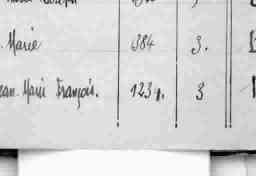 . Marie 384 3.
ean-Marie François. 1231. 3